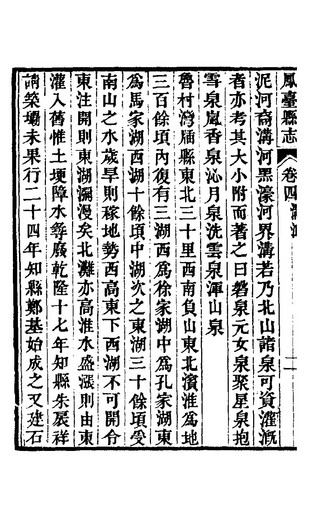 鳳臺縣志 卷四 溝洫 二
泥河裔溝河黑濠河界溝若乃北山諸泉可資灌漑
者亦考其大小附而著之曰磬泉元女泉聚星泉抱
雪泉嵐香泉沁月泉洗雲泉渾山泉
魯村灣廟縣東北三十里西南負山東北濱淮爲地
三百餘頃內復有三湖西爲徐家湖中爲孔家湖東
爲馬家湖西湖十餘頃中湖次之東湖三十餘頃受
南山之水歲旱則稼地勢西高東下西湖不可開合
東注開則東湖瀰漫矣北灘亦高淮水盛漲則由東
灌入舊惟土埂障水尋廢乾隆十七年知縣朱展祥
請築壩未果行二十四年知縣鄭基始成之又建石